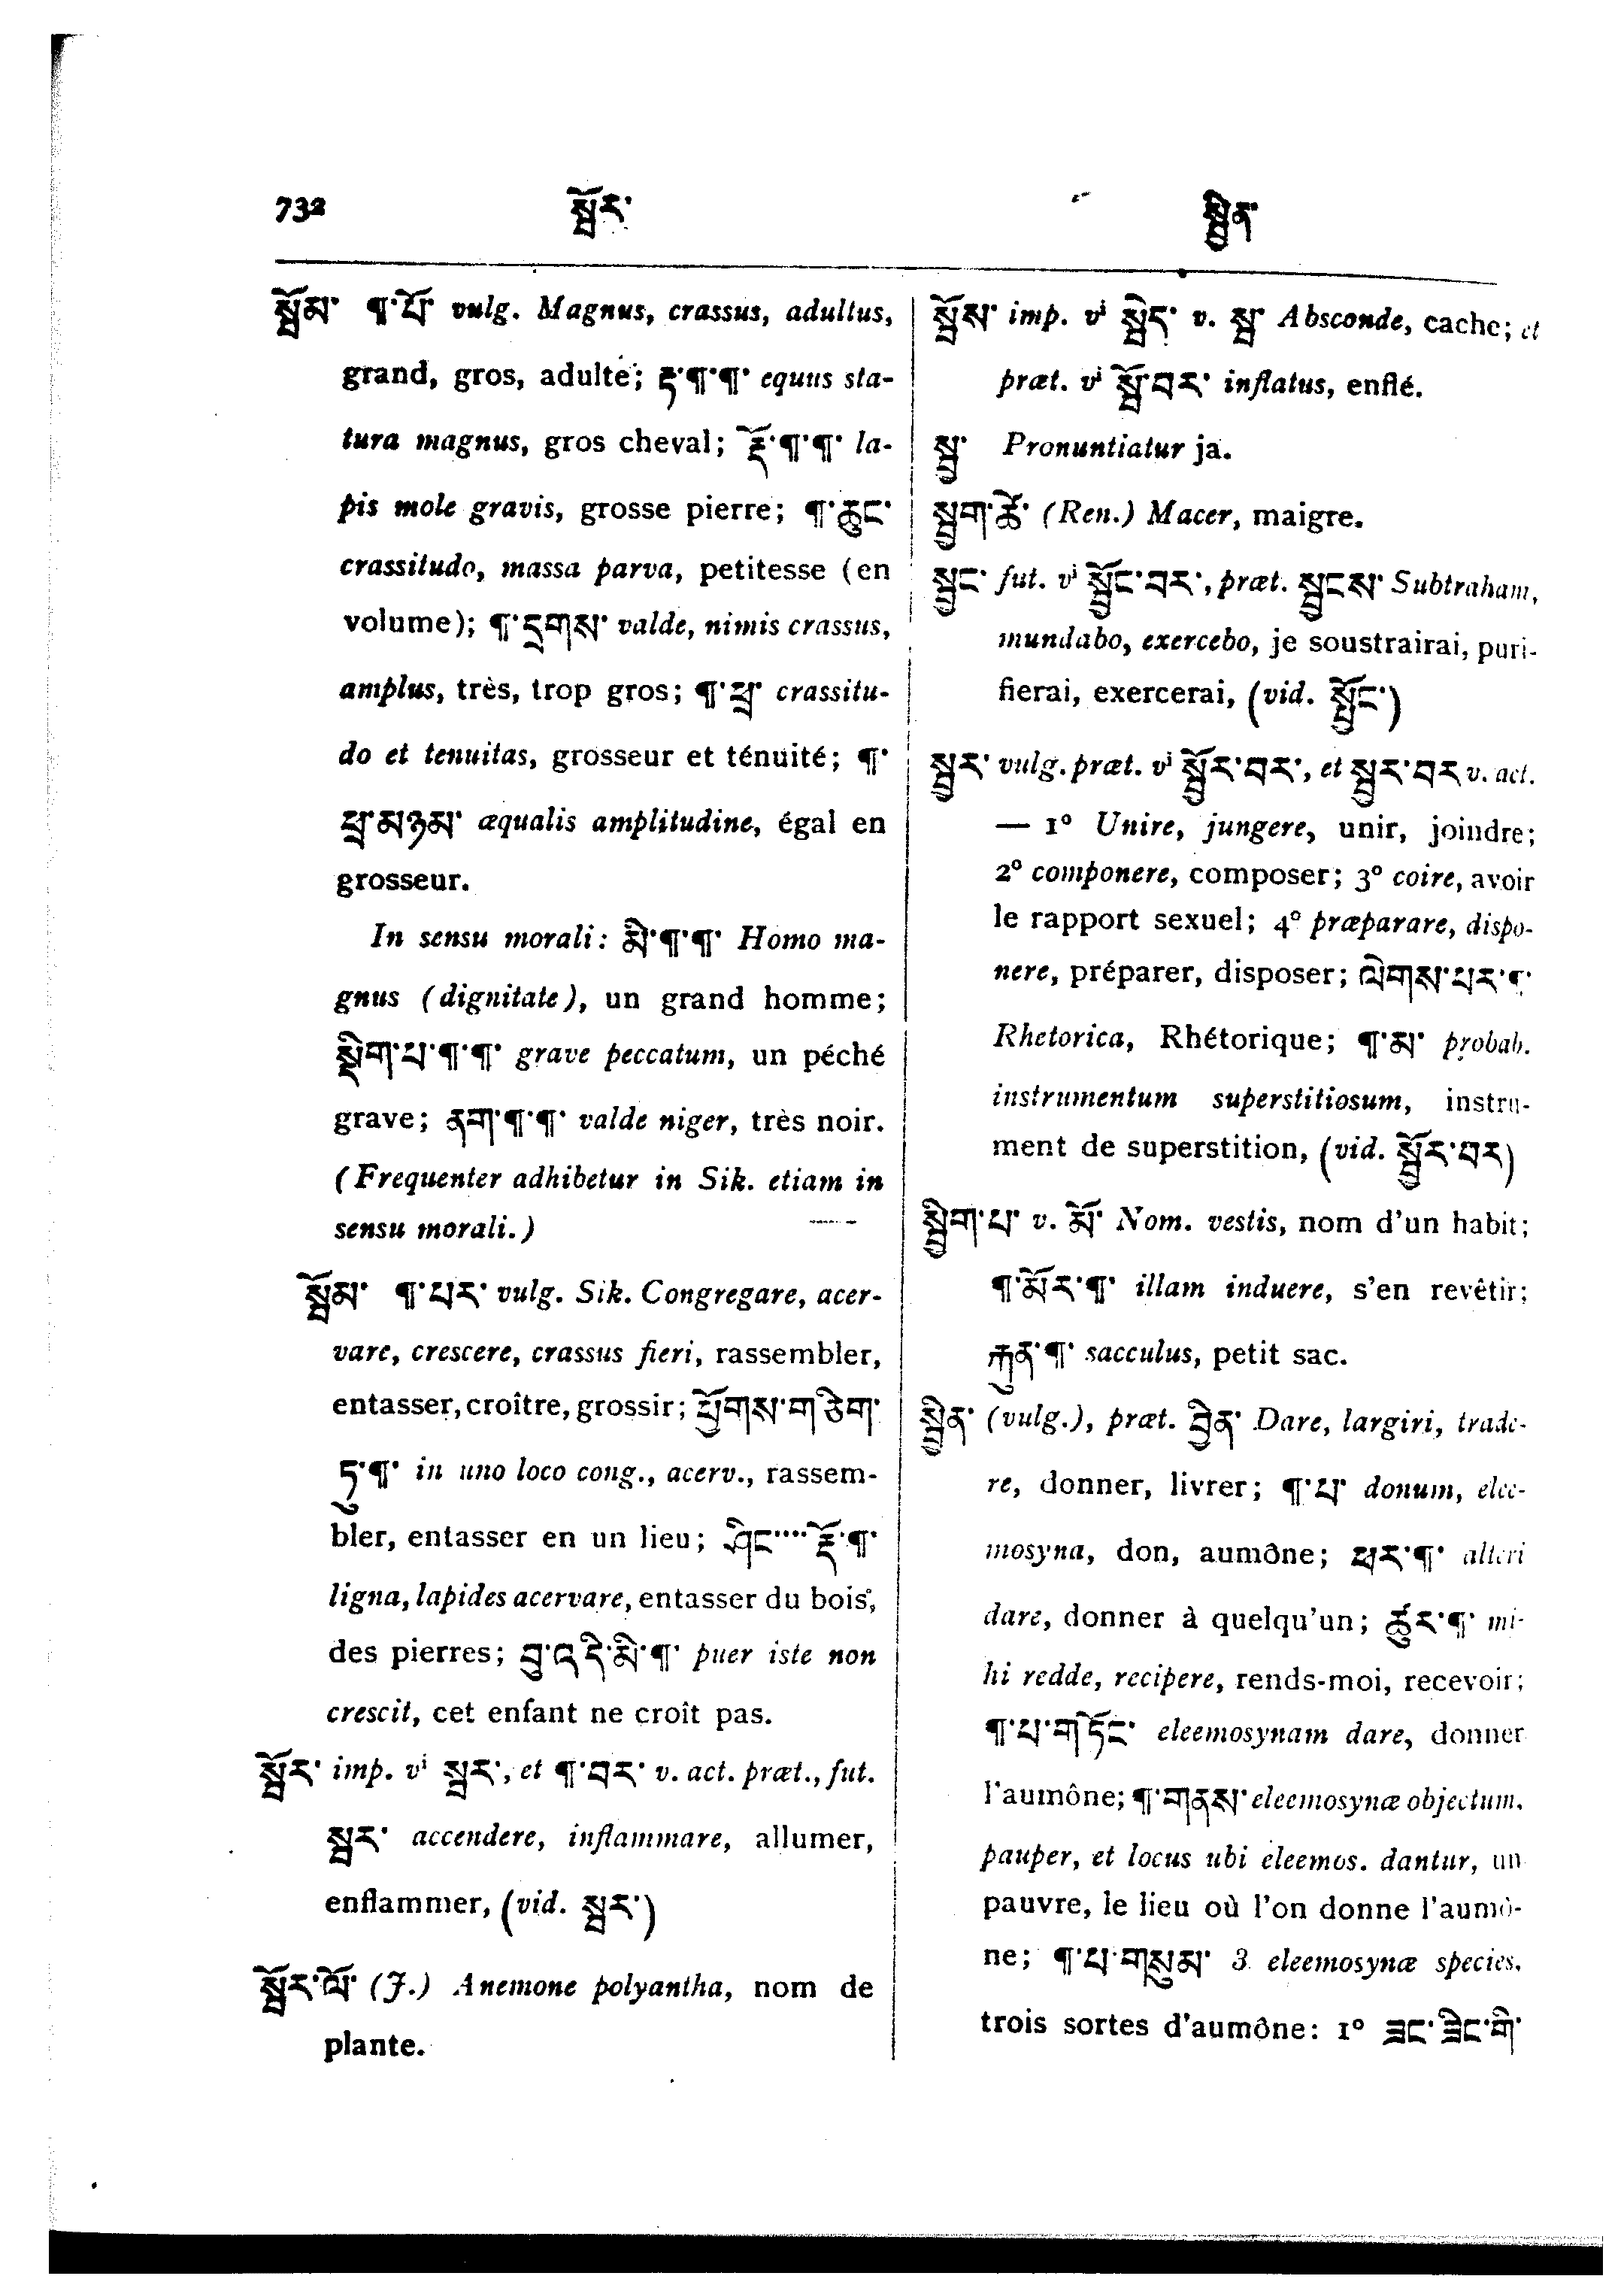 732
སྦོར་
སྦྱིན་
སྦོམ་ ¶་པོ་ vulg. Magnus, crassus, adultus,
grand, gros, adulte; རྟ་¶་¶་ equus sta-
tura magnus, gros cheval; རྡོ་¶་¶་ la-
pis mole gravis, grosse pierre; ¶་ཆུང་
crassitudo, massa parva, petitesse (en
volume); ¶་དྲགས་ valde, nimis crassus,
amplus, très, trop gros; ¶་ཕྲ་ crassitu-
do et tenuitas, grosseur et ténuité; ¶་
ཕྲ་མཉམ་ æqualis amplitudine, égal en
grosseur.
In sensu morali: མི་¶་¶་ Homo ma-
gnus (dignitate), un grand homme;
སྡིག་པ་¶་¶་ grave peccatum, un péché
grave; ནག་¶་¶་ valde niger, très noir.
(Frequenter adhibetur in Sik. etiam in
sensu morali.)
སྦོམ་ ¶་པར་ vulg. Sik. Congregare, acer-
vare, crescere, crassus fieri, rassembler,
entasser, croître, grossir; ཕྱོགས་གཅིག་
ཏུ་¶་ in uno loco cong., acerv., rassem-
bler, entasser en un lieu; ཤིང་་་་རྡོ་¶་
ligna, lapides acervare, entasser du bois,
des pierres; བུ་འདི་མི་¶་ puer iste non
crescit, cet enfant ne croît pas.
སྦོར་ imp. vⁱ སྦར་, et ¶་བར་ v. act. præt., fut.
སྦར་ accendere, inflammare, allumer,
enflammer, (vid. སྦར་)
སྦོར་ལོ་ (J.) Anemone polyantha, nom de
plante.
སྦོས་ imp. vⁱ སྦེད་ v. སྦ་ Absconde, cache; et
præt. vⁱ སྦོ་བར་ inflatus, enflé.
སྦྱ་ Pronuntiatur ja.
སྦྱག་ཚེ་ (Ren.) Macer, maigre.
སྦྱང་ fut. vⁱ སྦྱོང་བར་, præt. སྦྱངས་ Subtraham,
mundabo, exercebo, je soustrairai, puri-
fierai, exercerai, (vid. སྦྱོང་)
སྦྱར་ vulg. præt. vⁱ སྦྱོར་བར་, et སྦྱར་བར v. act.
— 1º Unire, jungere, unir, joindre;
2º componere, composer; 3º coire, avoir
le rapport sexuel; 4º præparare, dispo-
nere, préparer, disposer; ལེགས་པར་¶་
Rhetorica, Rhétorique; ¶་མ་ probab.
instrumentum superstitiosum, instru-
ment de superstition, (vid. སྦྱོར་བར)
སྦྱིག་པ་ v. མོ་ Nom. vestis, nom d'un habit;
¶་མོར་¶་ illam induere, s'en revêtir;
རྐུན་¶་ sacculus, petit sac.
སྦྱིན་ (vulg.), præt. བྱིན་ Dare, largiri, trade-
re, donner, livrer; ¶་པ་ donum, elee-
mosyna, don, aumône; ཕར་¶་ alteri
dare, donner à quelqu'un; ཚུར་¶་ mi-
hi redde, recipere, rends-moi, recevoir;
¶་པ་གཏོང་ eleemosynam dare, donner
l'aumône; ¶་གནས་ eleemosynæ objectum,
pauper, et locus ubi eleemos. dantur, un
pauvre, le lieu où l'on donne l'aumô-
ne; ¶་པ་གསུམ་ 3 eleemosynæ species,
trois sortes d'aumône: 1º ཟང་ཟིང་གི་